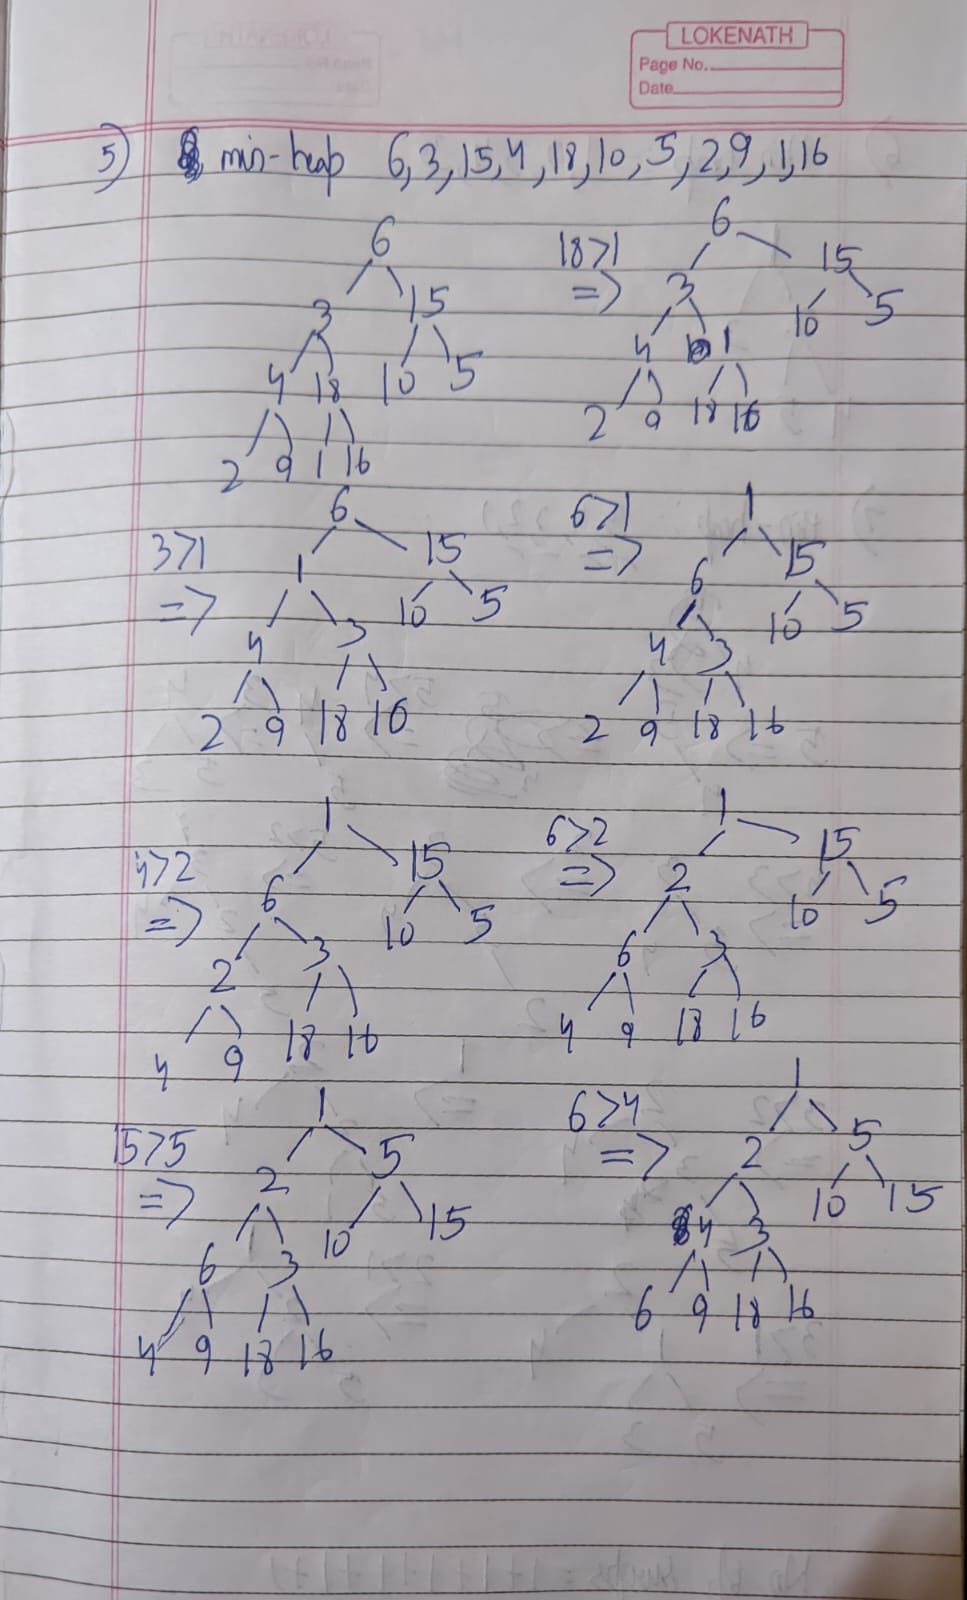 LOKENATH
Page No.
Date
5) min-heap 6,3,15,4,18,10,5,2,9,1,16
6
3 15
4 18 10 5
2 9 1 16
18>1
=>
6
3 15
4 1 10 5
2 9 18 16
3>1
=>
6
1 15
4 3 10 5
2 9 18 16
6>1
=>
1
6 15
4 3 10 5
2 9 18 16
4>2
=>
1
6 15
2 3 10 5
4 9 18 16
6>2
=>
1
2 15
6 3 10 5
4 9 18 16
15>5
=>
1
2 5
6 3 10 15
4 9 18 16
6>4
=>
1
2 5
4 3 10 15
6 9 18 16